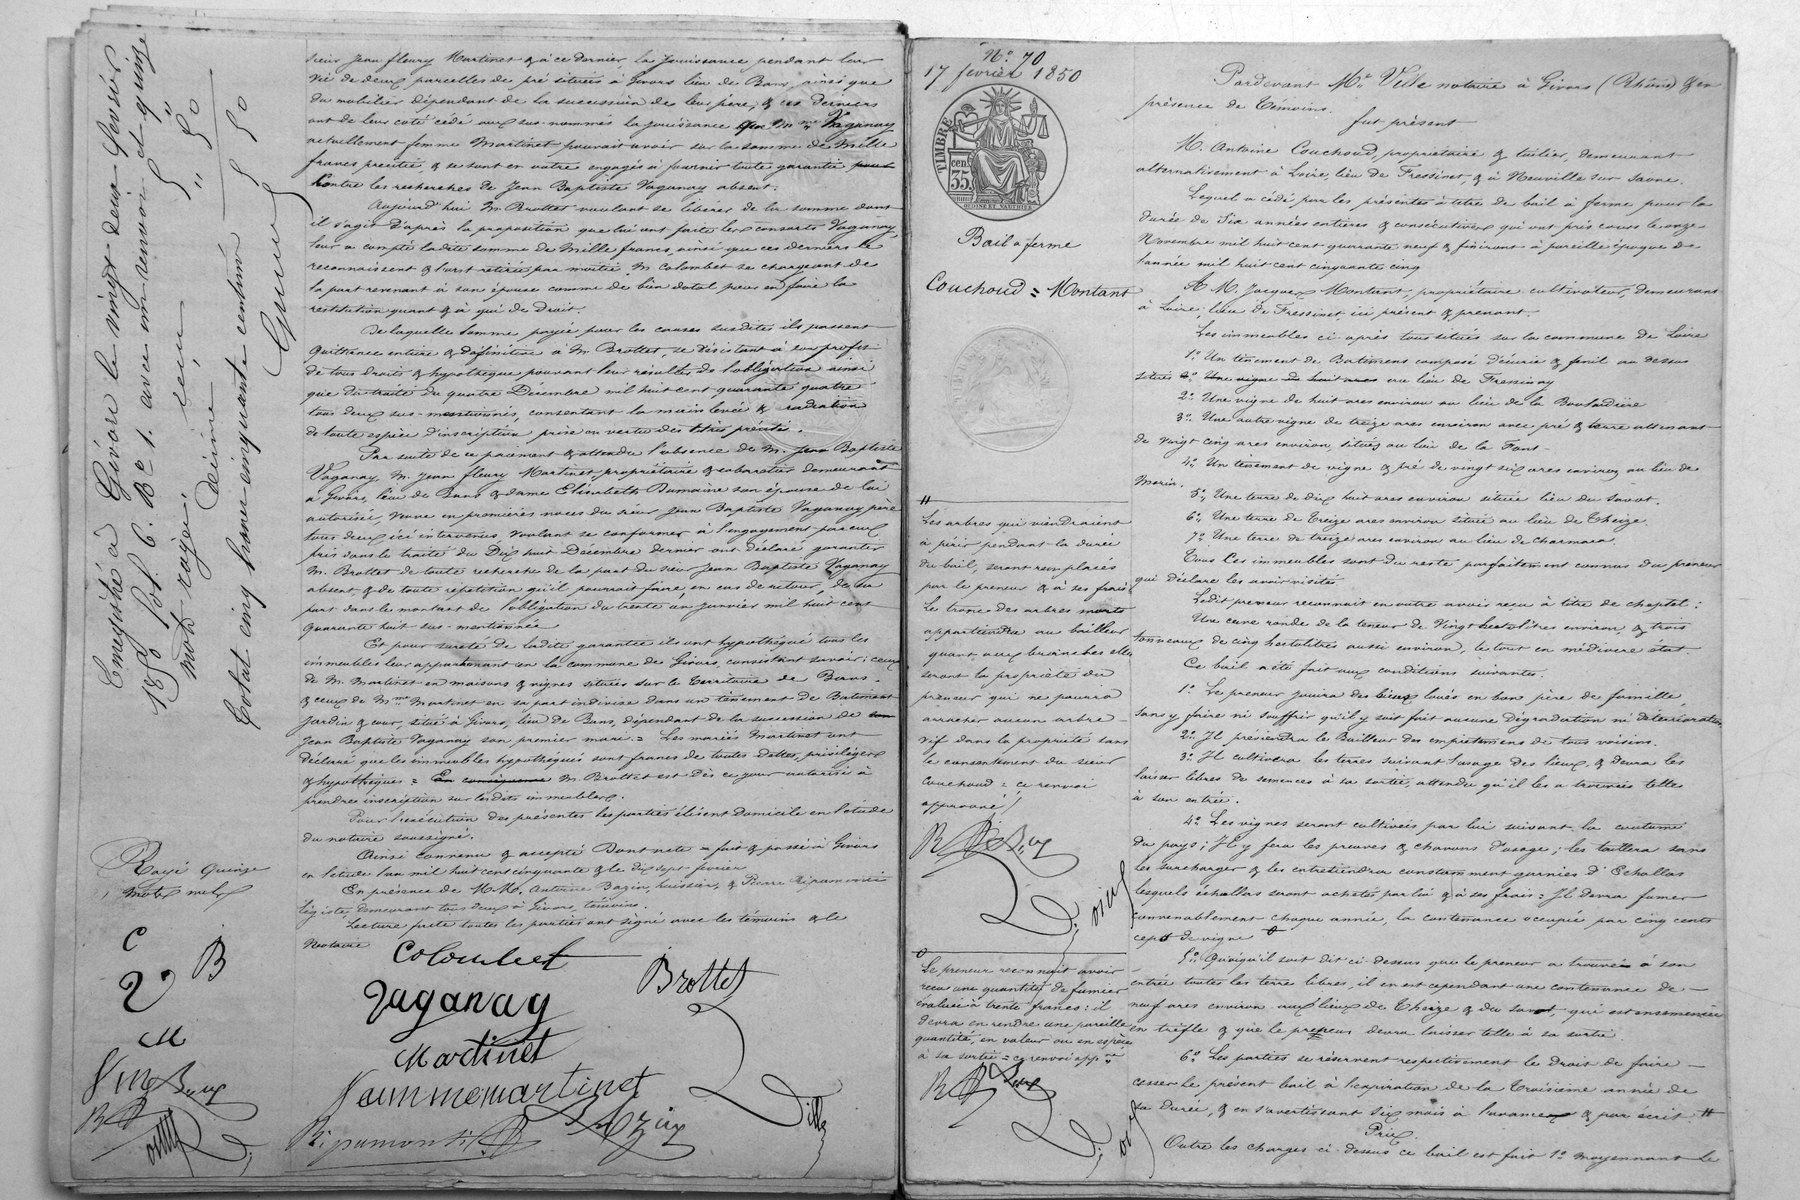 sieur Jean fleury Martinet & à ce dernier, la jouissance pendant leur
vie de deux parcelles de pré situées à Givors lieu de Bans, ainsi que
du mobilier dépendant de la succession de leur père; & ces derniers
ont de leur coté cédé aux sus-nommés la jouissance que Mme Vaganay
actuellement femme Martinet pourrait avoir sur la somme de Mille
francs précitée, & se sont en outre engagés à fournir toute garantie
contre les recherches de Jean Baptiste Vaganay absent.
Aujourd'hui M. Brottet voulant se libérer de la somme dont
il s'agit d'après la proposition que lui ont faite les consorts Vaganay,
leur a compté ladite somme de Mille francs, ainsi que ces derniers le
reconnaissent & l'ont retirée par moitié, M. Colombet se chargeant de
la part revenant à son épouse comme de bien dotal pour en faire la
restitution quant & à qui de Droit.
De laquelle somme payée pour les causes susdites ils passent
Quittance entière & définitive à M. Brottet, se désistant à son profit
de tous droits & hypothèque pouvant leur résulter de l'obligation ainsi
que du traité du quatre Décembre mil huit cent quarante quatre
tous deux sus-mentionnés, consentant la main levée & radiation
de toute espèce d'inscription prise en vertu des titres précités.
Par suite de ce paiement & attendu l'absence de M. Jean Baptiste
Vaganay, M. Jean fleury Martinet propriétaire & cabaretier demeurant
à Givors, lieu de Bans & dame Elisabeth Dumaine son épouse de lui
autorisée, veuve en premières noces du sieur Jean Baptiste Vaganay père
tous deux ici intervenus, voulant se conformer à l'engagement par eux
pris dans le traité du Dix huit Décembre dernier ont déclaré garantir
M. Brottet de toute recherche de la part du sieur Jean Baptiste Vaganay
absent & de toute répétition qu'il pourrait faire, en cas de retour, de sa
part dans le montant de l'obligation du trente un janvier mil huit cent
quarante huit sus-mentionnée
Et pour sureté de ladite garantie ils ont hypothéqué tous les
immeubles leur appartenant en la commune de Givors, consistant savoir: ceux
de M. Martinet en maisons & vignes situées sur le territoire de Bans.
& ceux de Mme Martinet en sa part indivise dans un tènement de Batiment
Jardin & cour, situé à Givors, lieu de Bans, dépendant de la succession de son
Jean Baptiste Vaganay son premier mari. = Les mariés Martinet ont
déclaré que les immeubles hypothéqués sont francs de toutes dettes, privilèges
& hypothèques = En conséquence M. Brottet est dès ce jour autorisé à
prendre inscription sur lesdits immeubles.
Pour l'exécution des présentes les parties élisent Domicile en l'étude
du notaire soussigné.
Ainsi convenu & accepté Dont acte = fait & passé à Givors
en l'étude l'an mil huit cent cinquante & le dix sept février
En présence de MM. Antoine Bazin, huissier, & Pierre Ripamonti
légiste, demeurant tous deux à Givors, témoins.
Lecture faite toutes les parties ont signé avec les témoins & le
Notaire
Colombet
Brottet
Vaganay
Martinet
femme martinet
Ripamonti
Bazin
Ville
Enregistré à Givors le vingt deux février
1850 fol. 6. R° C 1. avec un renvoi et quinze
mots rayés, reçu 5 " 
décime " 50
Total cinq francs cinquante centimes 5 50
Rayé Quinze
mots nuls
C
B
V
M
N° 70
17 février 1850
TIMBRE
cen.
35.
Bail à ferme
Couchoud = Montant
#
Les arbres qui viendraient
à périr pendant la durée
du bail, seront remplacés
par le preneur & à ses frais.
Le tronc des arbres morts
appartiendra au bailleur
quant aux branches elles
seront la propriété du
preneur qui ne pourra
arracher aucun arbre
vif dans la propriété sans
le consentement du sieur
Couchoud = ce renvoi
approuvé /
Le preneur reconnait avoir
reçu une quantité de fumier
évaluée à trente francs: il
devra en rendre une pareille
quantité, en valeur ou en espèces
à sa sortie = ce renvoi appvé
Pardevant Me Ville notaire à Givors (Rhône) & en
présence de témoins.
fut présent
M. Antoine Couchoud, propriétaire & tuilier, demeurant
alternativement à Loire, lieu de Fressinet, & à Neuville sur Saone.
Lequel a cédé par les présentes à titre de bail à ferme pour la
durée de Six années entières & consécutives qui ont pris cours le onze
Novembre mil huit cent quarante neuf & finiront à pareille époque de
l'année mil huit cent cinquante cinq
A M. Jacques Montant, propriétaire cultivateur, demeurant
à Loire, lieu de Fressinet, ici présent & prenant.
Les immeubles ci après tous situés sur la commune de Loire
1° Un tènement de Batimens composé d'écurie & fenil au dessus
situés 2° Une vigne de huit ares au lieu de Fressinay
2° Une vigne de huit ares environ au lieu de la Boulardière
3° Une autre vigne de treize ares environ avec pré & terre attenant
de vingt cinq ares environ, situés au lieu de la Font
4° Un tènement de vigne & pré de vingt six ares environ au lieu de
Morin.
5°, Une terre de dix huit ares environ située lieu du Savot.
6°, Une terre de treize ares environ située au lieu de Theize.
7° Une terre de treize ares environ au lieu de Charmara.
Tous les immeubles sont du reste parfaitement connus du preneur
qui déclare les avoir visités
Ledit preneur reconnait en outre avoir reçu à titre de cheptel:
Une cuve ronde de la teneur de vingt hectolitres environ, & trois
tonneaux de cinq hectolitres aussi environ, le tout en médiocre état.
Ce bail a été fait aux conditions suivantes.
1° Le preneur jouira des lieux loués en bon père de famille,
sans y faire ni souffrir qu'il y soit fait aucune dégradation ni détérioration
2° Il préviendra le Bailleur des empiètemens de tous voisins.
3° Il cultivera les terres suivant l'usage des lieux, & devra les
laisser libres de semences à sa sortie, attendu qu'il les a trouvées telles
à son entrée.
4° Les vignes seront cultivées par lui suivant la coutume
du pays; Il y fera les preuves & chavons d'usage; les taillera sans
les surcharger & les entretiendra constamment garnies d'Echallas
lesquels échallas seront achetés par lui & à ses frais = Il devra fumer
convenablement chaque année, la contenance occupée par cinq cents
ceps de vigne
5° Quoiqu'il soit dit ci-dessus que le preneur a trouvé à son
entrée toutes les terres libres, il en est cependant une contenance de
neuf ares environ aux lieux de Theize & du Savot qui est ensemencée
en trèfle & que le preneur devra laisser telle à sa sortie.
6° Les parties se réservent respectivement le Droit de faire
cesser le présent bail à l'expiration de la troisième année de
sa durée, & en s'avertissant six mois à l'avance & par écrit. #
Prix.
Outre les charges ci-dessus ce bail est fait 1° moyennant le